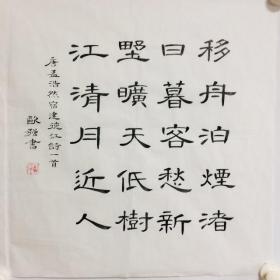 移舟泊煙渚
日暮客愁新
壄曠天低樹
江清月近人
唐孟浩然宿建德江詩一首
歐
書